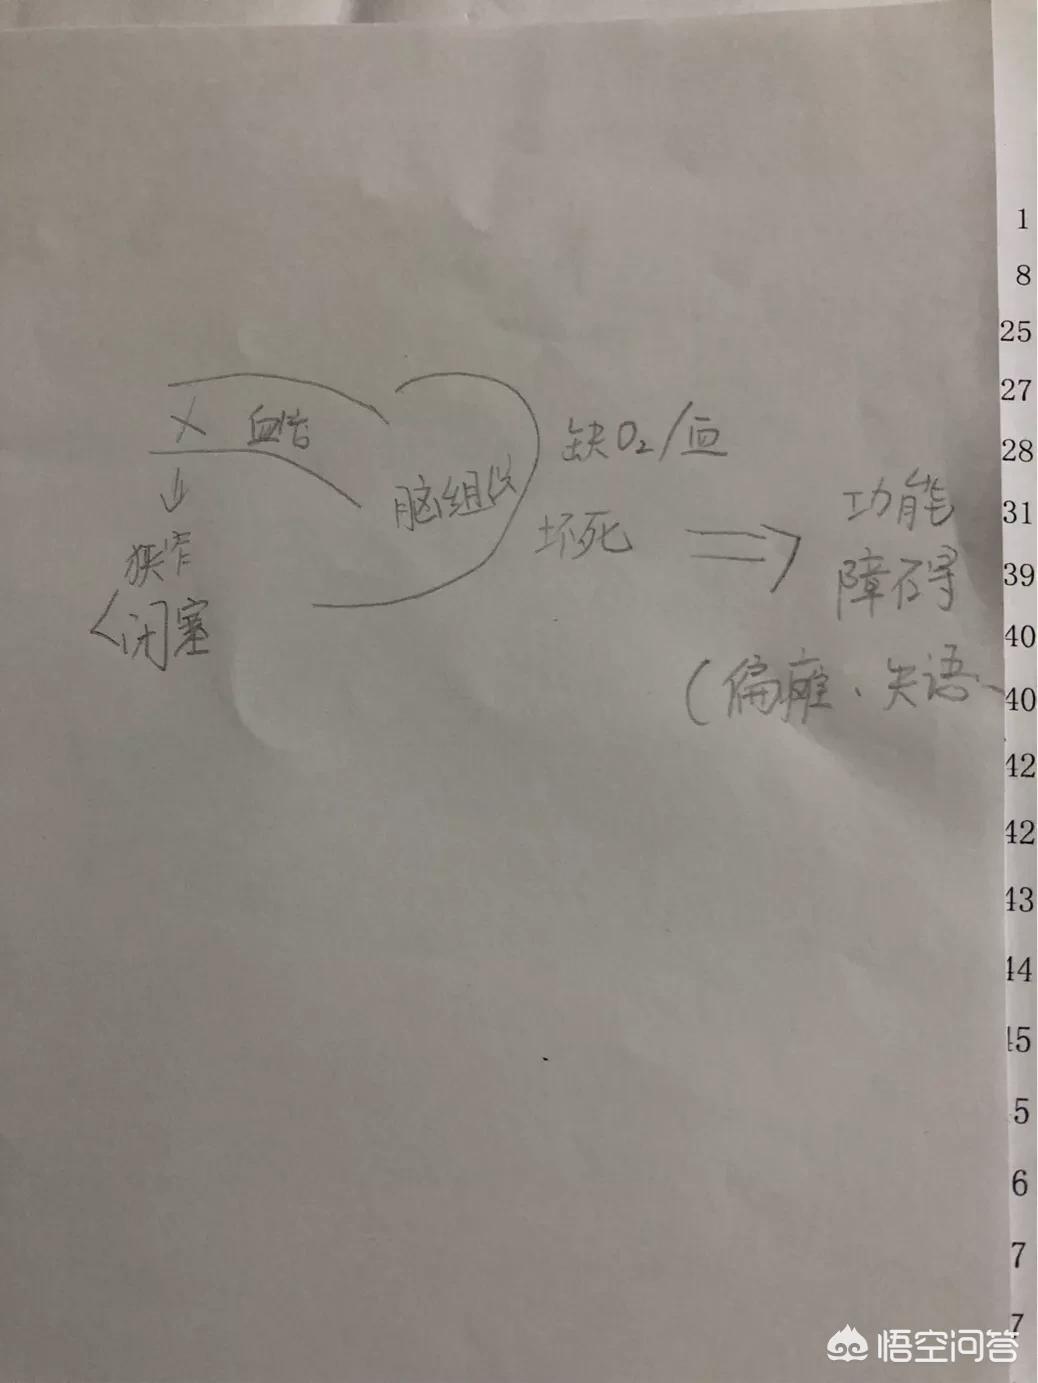 血管
脑组织
缺O₂/血
坏死
狭窄
闭塞
功能
障碍
(偏瘫、失语、
1
8
25
27
28
31
39
40
40
42
42
43
44
45
5
6
7
7
悟空问答